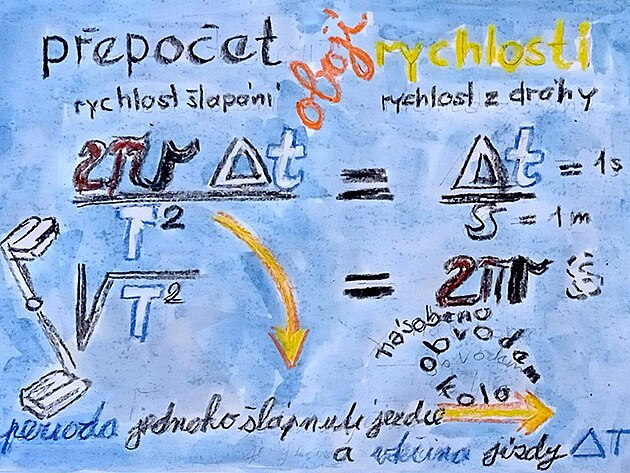 přepočet obojí rychlosti
rychlost šlapání rychlost z dráhy
2πr Δt / T² = Δt = 1s / S = 1m
√T² = 2πr s
násobeno
obvodem
kolo
perioda jednoho šlápnutí jezdce
a většina jízdy ΔT